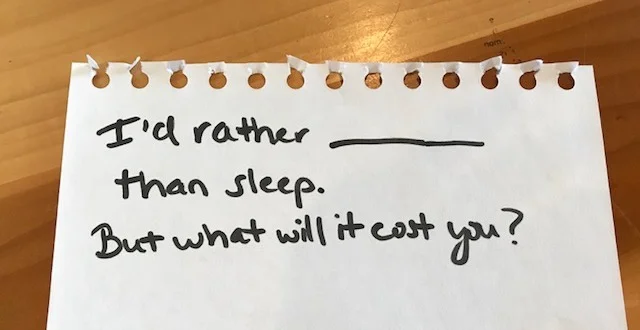 I'd rather ________
than sleep.
But what will it cost you?